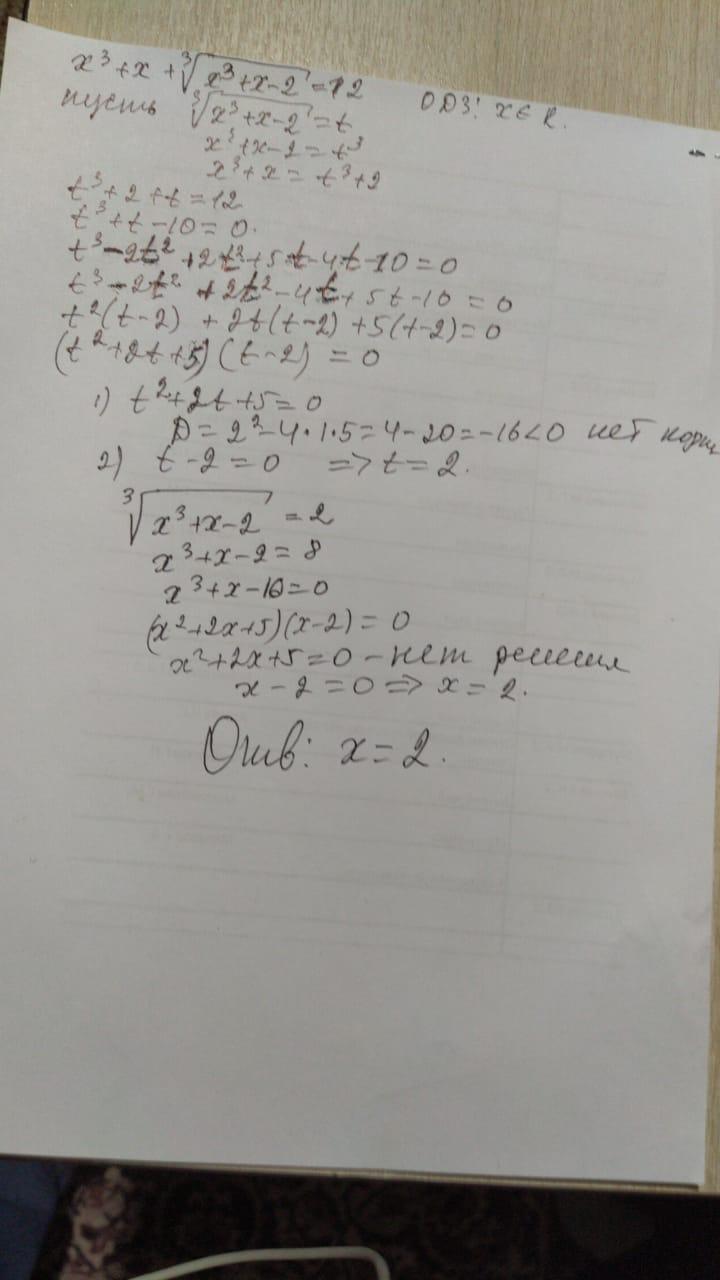 x³+x+∛(x³+x-2)=12 ОДЗ: x∈R.
пусть ∛(x³+x-2)=t
x³+x-2=t³
x³+x=t³+2
t³+2+t=12
t³+t-10=0.
t³-2t²+2t²+5t-4t-10=0
t³-2t²+2t²-4t+5t-10=0
t²(t-2)+2t(t-2)+5(t-2)=0
(t²+2t+5)(t-2)=0
1) t²+2t+5=0
D=2²-4·1·5=4-20=-16<0 нет корн
2) t-2=0 => t=2.
∛(x³+x-2)=2
x³+x-2=8
x³+x-10=0
(x²+2x+5)(x-2)=0
x²+2x+5=0-нет решения
x-2=0=>x=2.
Отв: x=2.